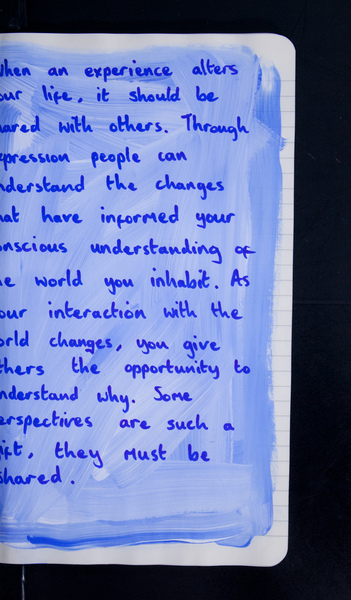 when an experience alters
our life, it should be
hared with others. Through
xpression people can
nderstand the changes
hat have informed your
onscious understanding of
he world you inhabit. As
our interaction with the
orld changes, you give
thers the opportunity to
nderstand why. Some
erspectives are such a
ift, they must be
shared.